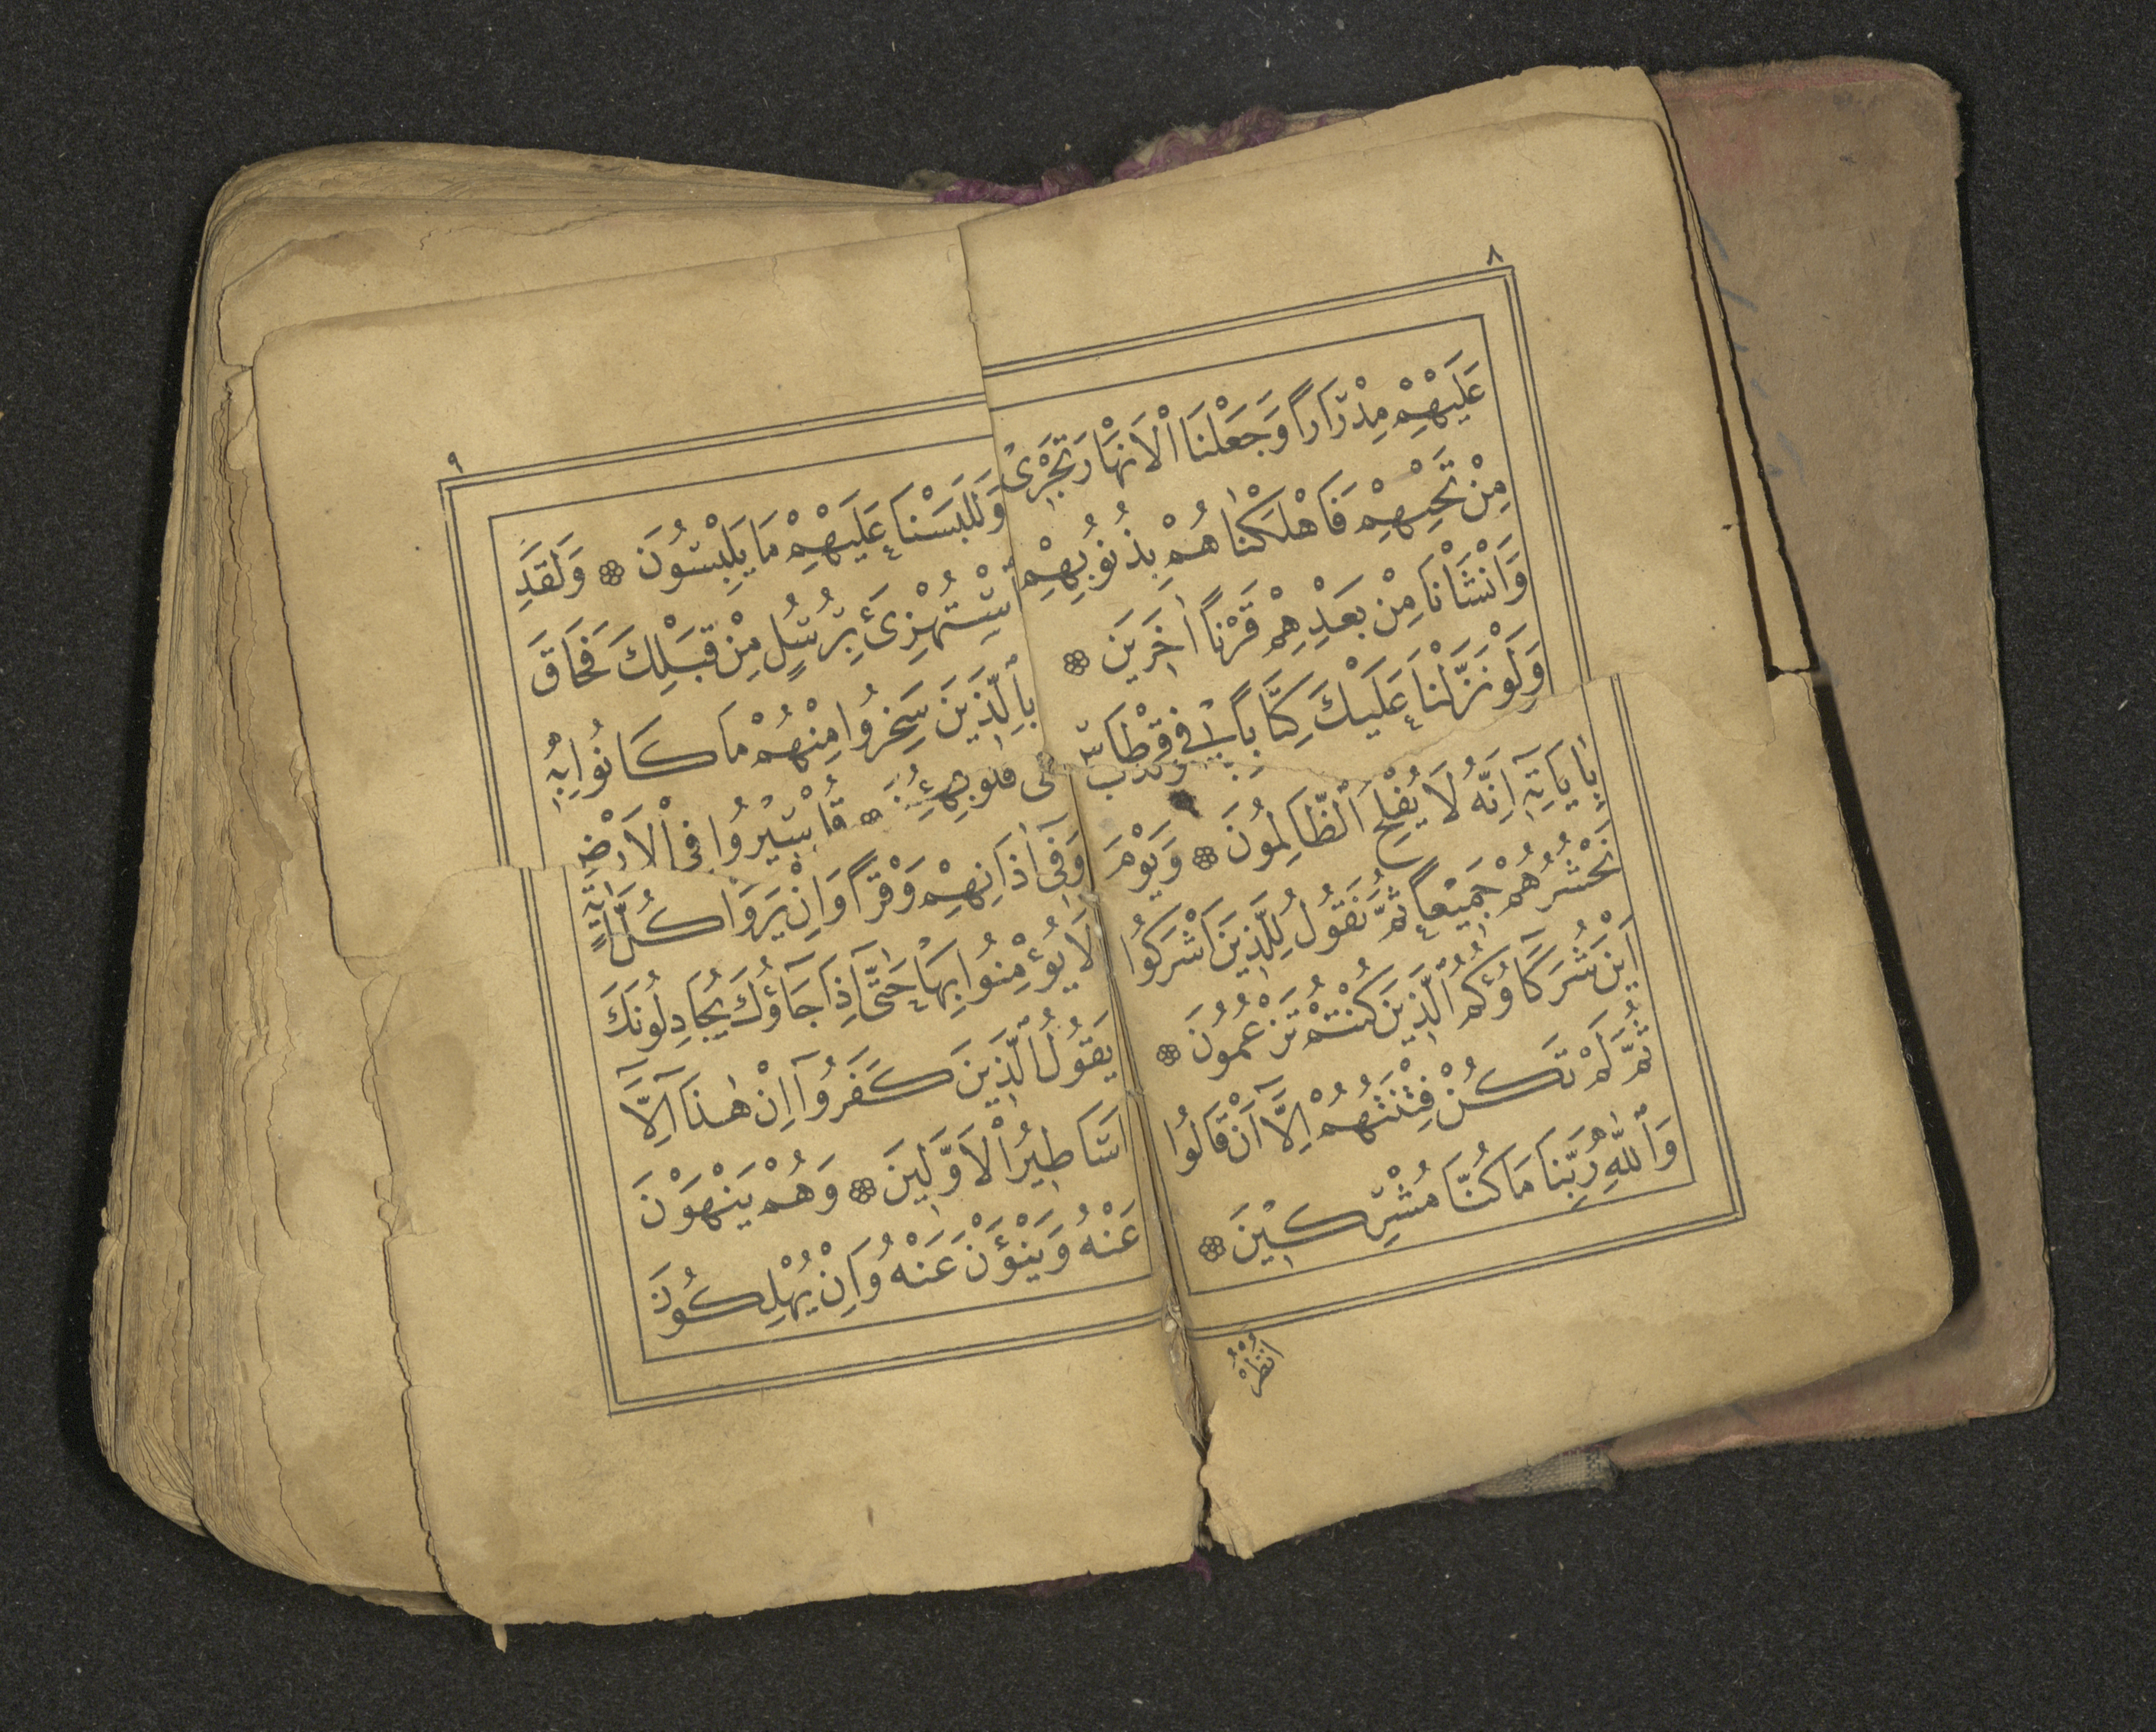 ٨
عَلَيْهِمْ مِدْرَارًا وَجَعَلْنَا الْاَنْهَارَ تَجْرٖى
مِنْ تَحْتِهِمْ فَاَهْلَكْنَاهُمْ بِذُنُوبِهِمْ
وَاَنْشَاْنَا مِنْ بَعْدِهِمْ قَرْنًا اٰخَرٖينَ
وَلَوْ نَزَّلْنَا عَلَيْكَ كِتَابًا فٖى قِرْطَاسٍ
بِاٰيَاتِهٖ اِنَّهُ لَا يُفْلِحُ الظَّالِمُونَ وَيَوْمَ
نَحْشُرُهُمْ جَمٖيعًا ثُمَّ نَقُولُ لِلَّذٖينَ اَشْرَكُوا
اَيْنَ شُرَكَاؤُكُمُ الَّذٖينَ كُنْتُمْ تَزْعُمُونَ
ثُمَّ لَمْ تَكُنْ فِتْنَتُهُمْ اِلَّا اَنْ قَالُوا
وَاللّٰهِ رَبِّنَا مَا كُنَّا مُشْرِكٖينَ
اُنْظُرْ
٩
وَلَلَبَسْنَا عَلَيْهِمْ مَا يَلْبِسُونَ وَلَقَدِ
اسْتُهْزِئَ بِرُسُلٍ مِنْ قَبْلِكَ فَحَاقَ
بِالَّذٖينَ سَخِرُوا مِنْهُمْ مَا كَانُوا بِهٖ
سٖيرُوا فِى الْاَرْضِ
وَفٖى اٰذَانِهِمْ وَقْرًا وَاِنْ يَرَوْا كُلَّ اٰيَةٍ
لَا يُؤْمِنُوا بِهَا حَتّٰى اِذَا جَاؤُكَ يُجَادِلُونَكَ
يَقُولُ الَّذٖينَ كَفَرُوا اِنْ هٰذَا اِلَّا
اَسَاطٖيرُ الْاَوَّلٖينَ وَهُمْ يَنْهَوْنَ
عَنْهُ وَيَنْؤَنَ عَنْهُ وَاِنْ يُهْلِكُونَ